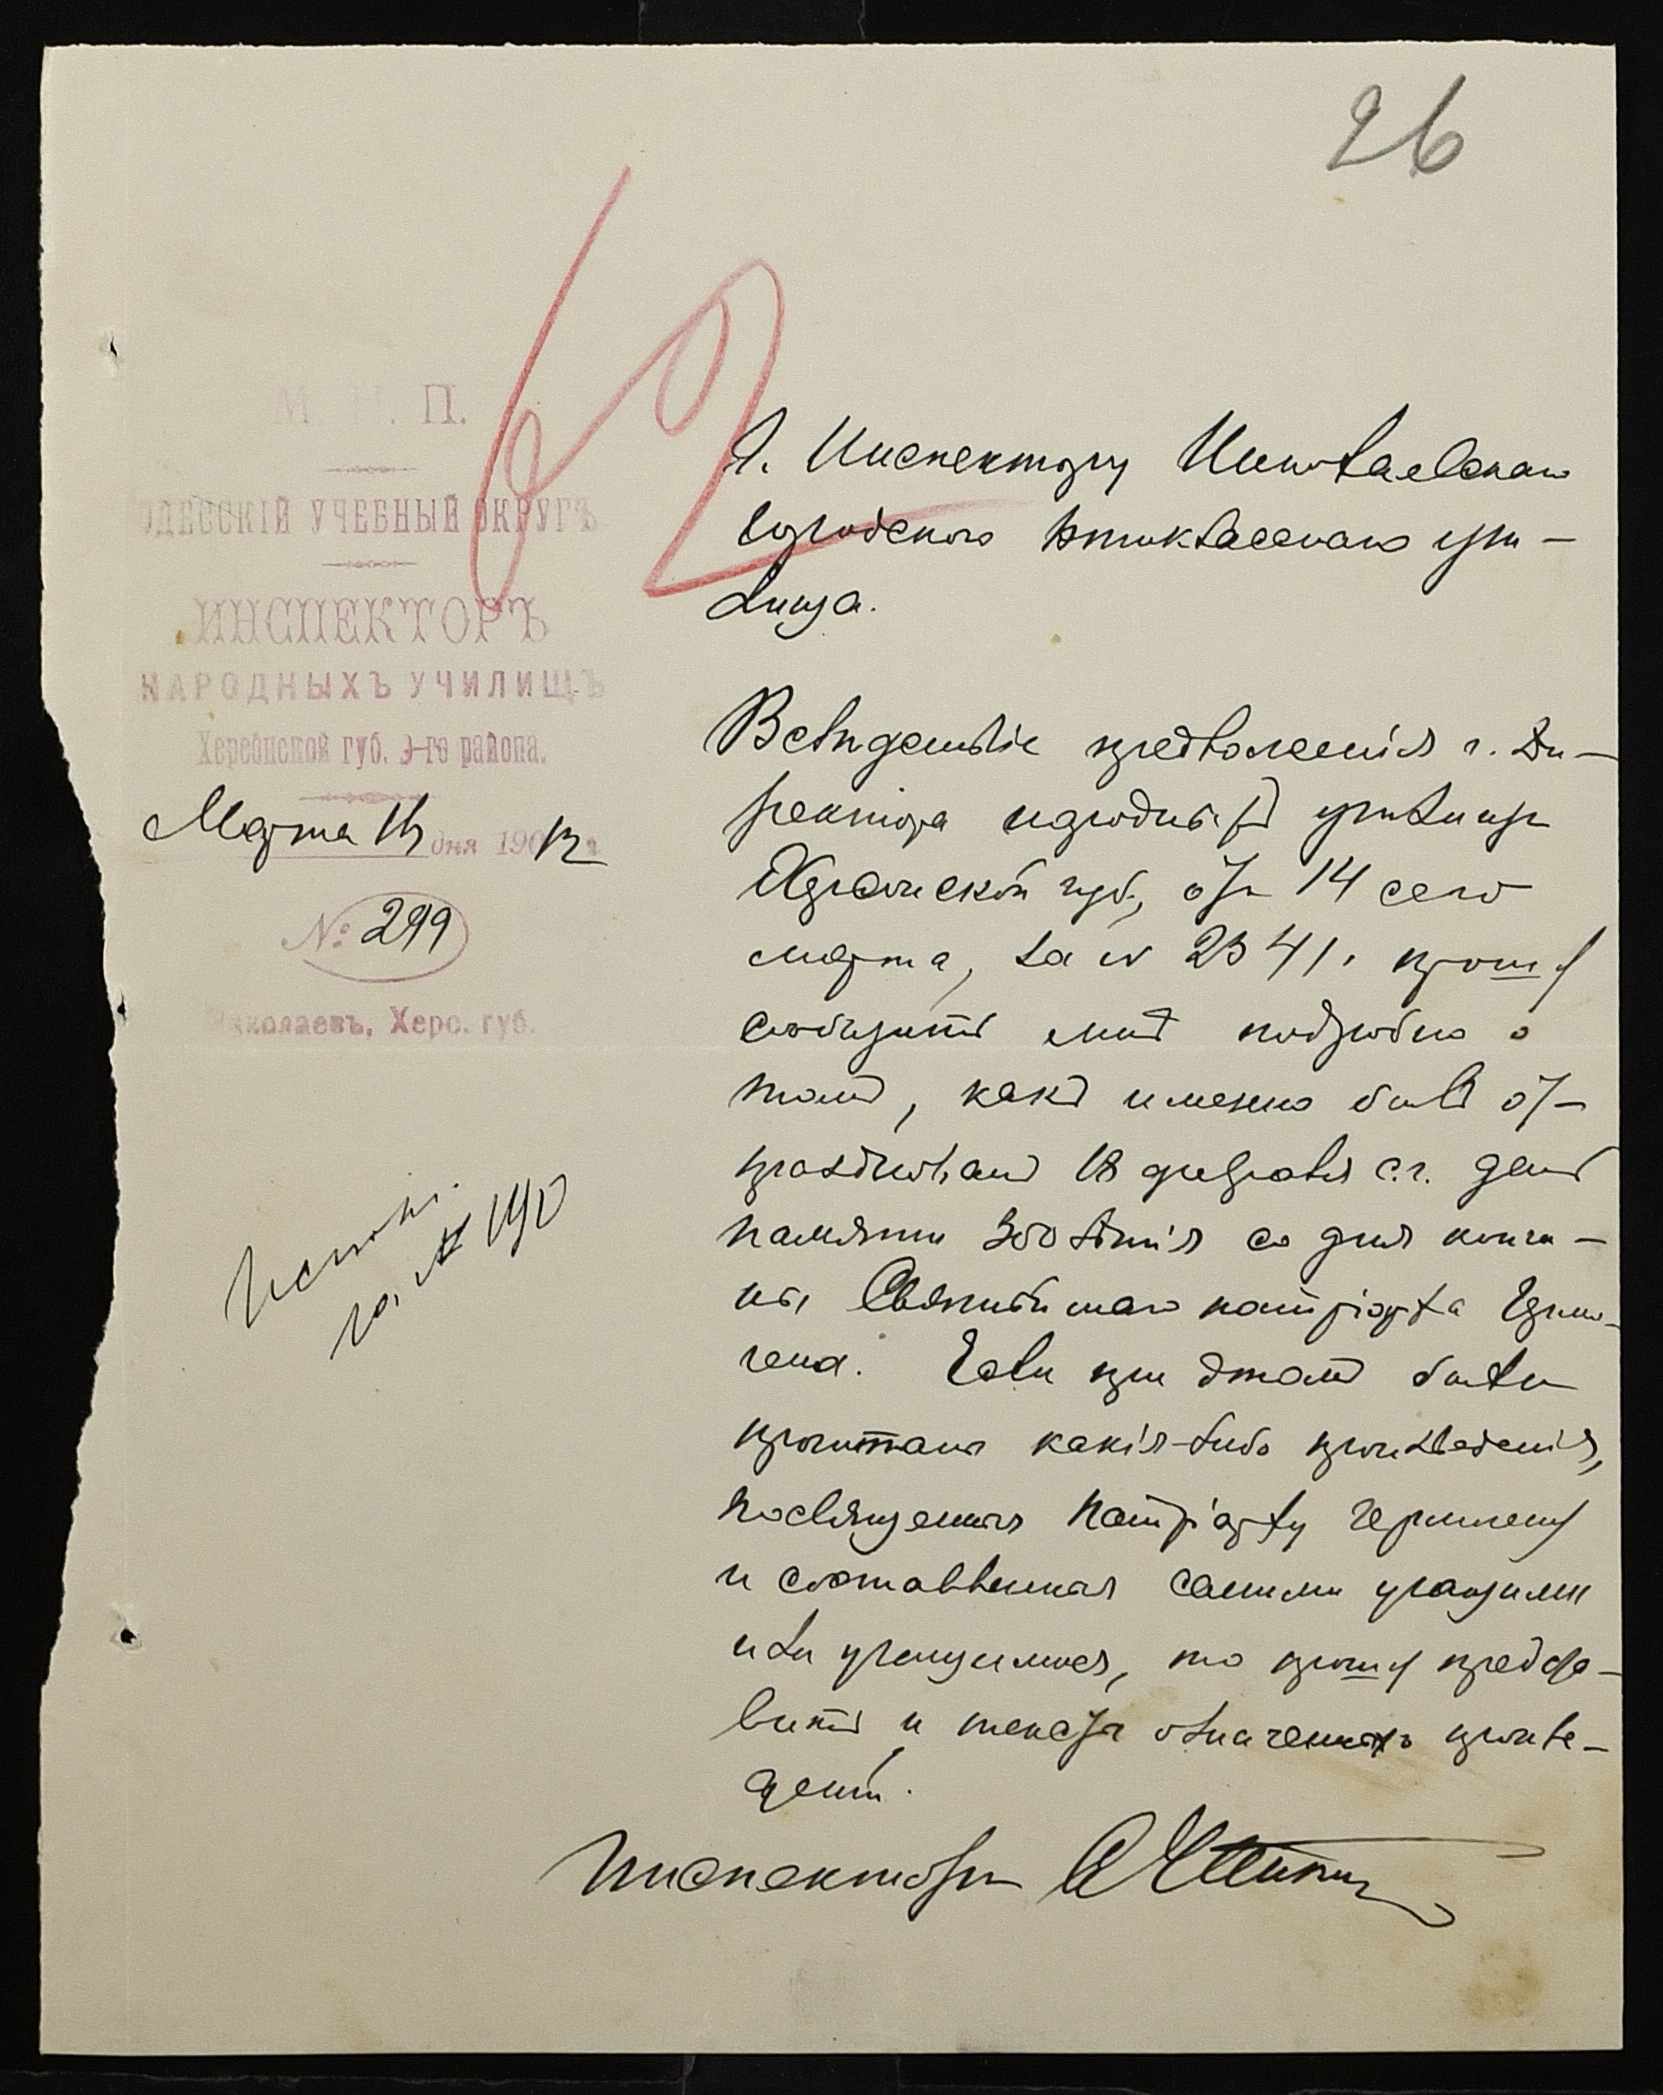 26
М. Н. П.
ОДЕССКІЙ УЧЕБНЫЙ ОКРУГЪ
ИНСПЕКТОРЪ
НАРОДНЫХЪ УЧИЛИЩЪ
Херсонской губ. 3-го района.
Марта дня 1912 г.
№ 299
Николаевъ, Херс. губ.
Исполн.
за №
Г. Инспектору Николаевскаго
городского пятикласснаго учи-
лища.
Вслѣдствіе предложенія г. Ди-
ректора народныхъ училищъ
Херсонской губ., отъ 14 сего
марта, за № 2341, прошу
сообщить мнѣ подробно о
томъ, какъ именно былъ от-
празднованъ 18 февраля с.г. день
памяти 300 лѣтія со дня кончи-
ны Святѣйшаго патріарха Ермо-
гена. Если при этомъ были
прочитаны какія-либо произведенія,
посвященныя патріарху Гермогену
и составленныя самими учащими
или учащимися, то прошу предста-
вить и текстъ означенныхъ произве-
деній.
Инспекторъ